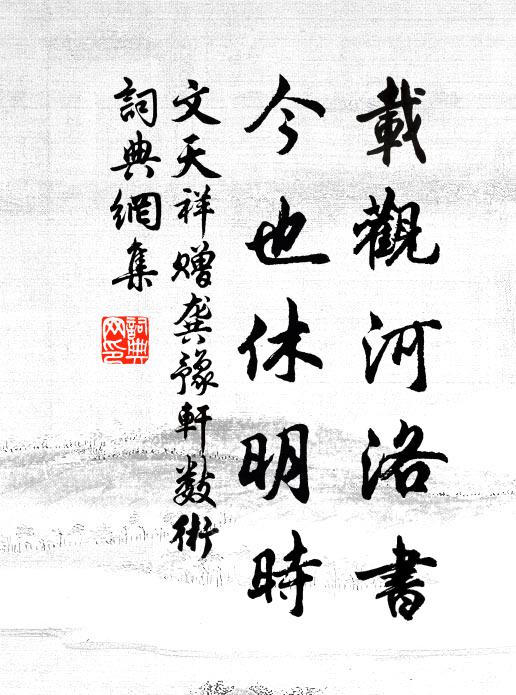 載觀河洛書
今也休明時
文天祥贈龔豫軒數術
詞典網集
詞典網印